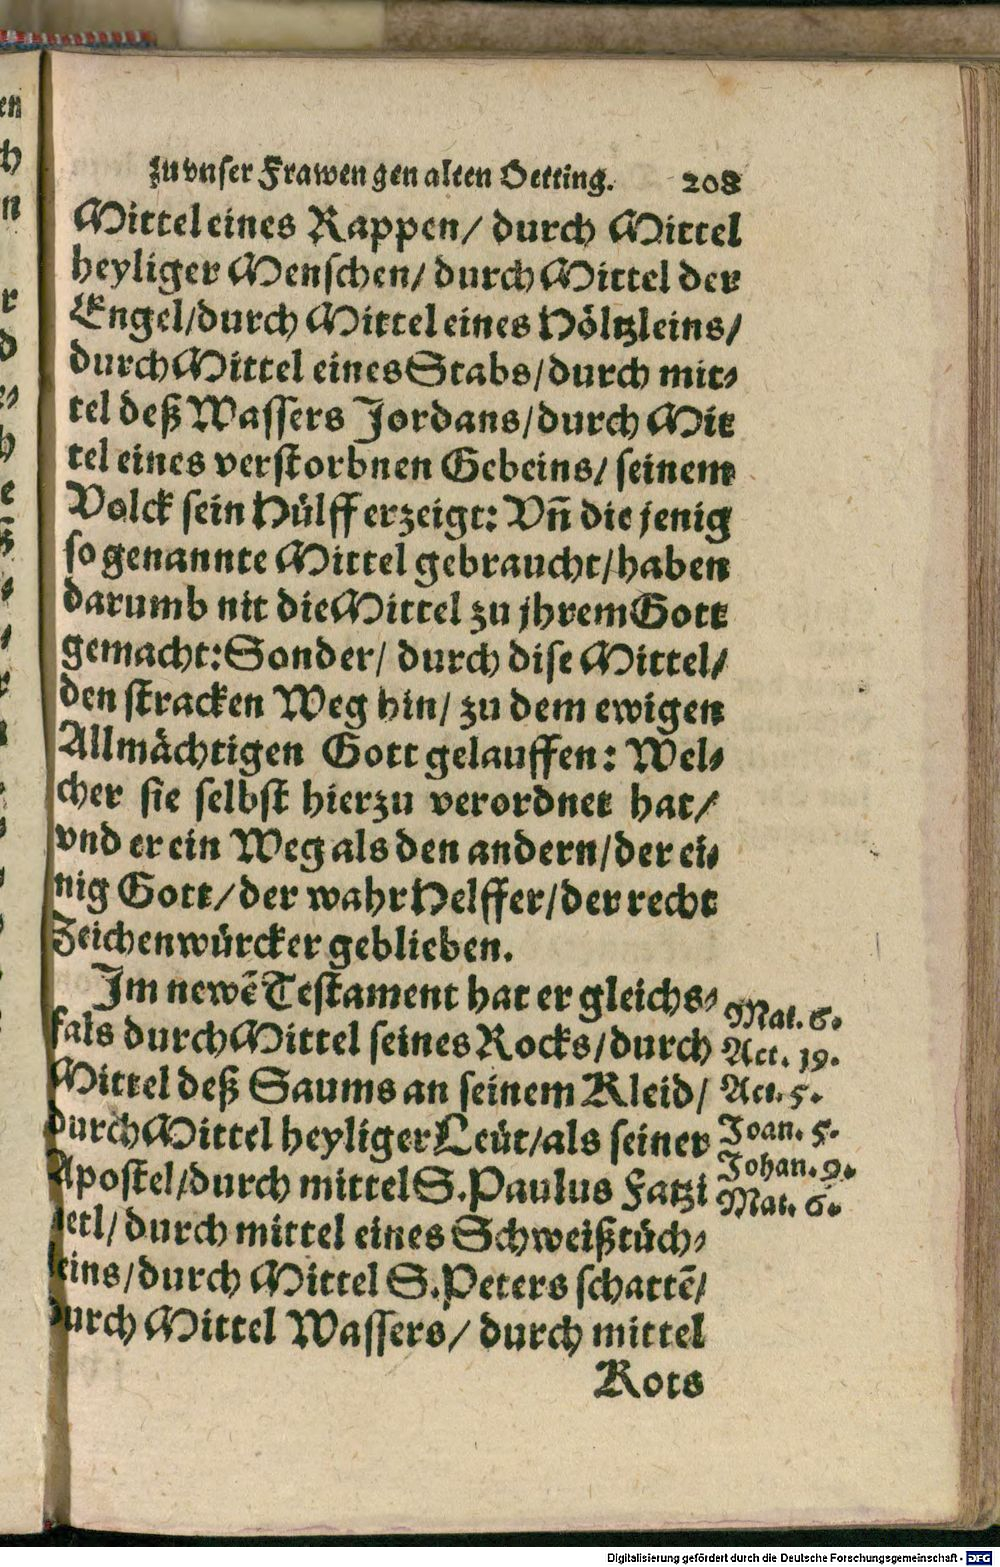 zu vnser Frawen gen alten Oetting. 208
Mittel eines Rappen/ durch Mittel
heyliger Menschen/ durch Mittel der
Engel/durch Mittel eines Höltzleins/
durch Mittel eines Stabs/durch mit-
tel deß Wassers Jordans/durch Mit
tel eines verstorbnen Gebeins/ seinem
Volck sein Hülff erzeigt: Vñ die jenig
so genannte Mittel gebraucht/haben
darumb nit die Mittel zu jhrem Gott
gemacht: Sonder/ durch dise Mittel/
den stracken Weg hin/ zu dem ewigen
Allmächtigen Gott gelauffen: Wel-
cher sie selbst hierzu verordnet hat/
vnd er ein Weg als den andern/der ei-
nig Gott/der wahr Helffer/der recht
Zeichenwürcker geblieben.
Im newẽ Testament hat er gleichs-
fals durch Mittel seines Rocks/durch
Mittel deß Saums an seinem Kleid/
durch Mittel heyliger Leüt/als seiner
Apostel/durch mittel S. Paulus Fatzi
letl/durch mittel eines Schweißtüch-
leins/durch Mittel S. Peters schattẽ/
durch Mittel Wassers/ durch mittel
Kots
Mat. 6.
Act. 19.
Act. 5.
Joan. 5.
Johan. 9.
Mat. 6.
en
h
n
r
d
h
e
Digitalisierung gefördert durch die Deutsche Forschungsgemeinschaft - DFG